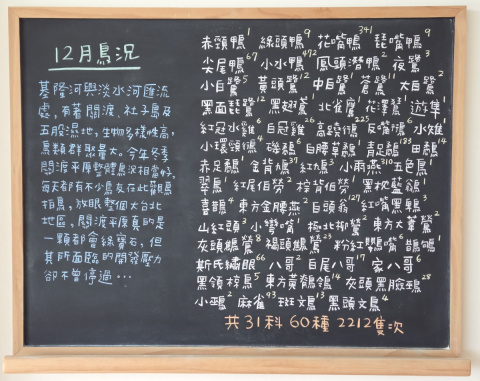 12月鳥況
基隆河與淡水河匯流
處,有著關渡、社子島及
五股濕地,生物多樣性高,
鳥類群聚量大。今年冬季
關渡平原整體鳥況相當好,
每天都有不少鳥友在此賞鳥
拍鳥,放眼整個大台北
地區,關渡平原真的是
一顆都會綠寶石,但
其所面臨的開發壓力
卻不曾停過…
赤頸鴨1 綠頭鴨9 花嘴鴨341 琵嘴鴨9
尖尾鴨67 小水鴨472 鳳頭潛鴨2 夜鷺3
小白鷺5 黃頭鷺12 中白鷺1 蒼鷺11 大白鷺2
黑面琵鷺10 黑翅鳶1 北雀鷹1 花澤鵟1 遊隼1
紅冠水雞6 白冠雞26 高蹺鴴225 反嘴鴴6 小水雉1
小環頸鴴1 磯鷸6 白腰草鷸1 青足鷸185 田鷸14
赤足鷸1 金背鳩37 紅鳩3 小雨燕310 五色鳥1
翠鳥1 紅尾伯勞2 棕背伯勞1 黑枕藍鶲1
喜鵲4 東方金腰燕2 白頭翁127 紅嘴黑鵯1
山紅頭1 小彎嘴1 極北柳鶯2 東方大葦鶯2
灰頭鷦鶯8 褐頭鷦鶯23 粉紅鸚嘴6 鵲鴝1
斯氏繡眼66 八哥2 白尾八哥17 家八哥6
黑領椋鳥5 東方黃鶺鴒14 灰頭黑臉鵐28
小鵐2 麻雀93 斑文鳥13 黑頭文鳥4
共31科 60種 2212隻次